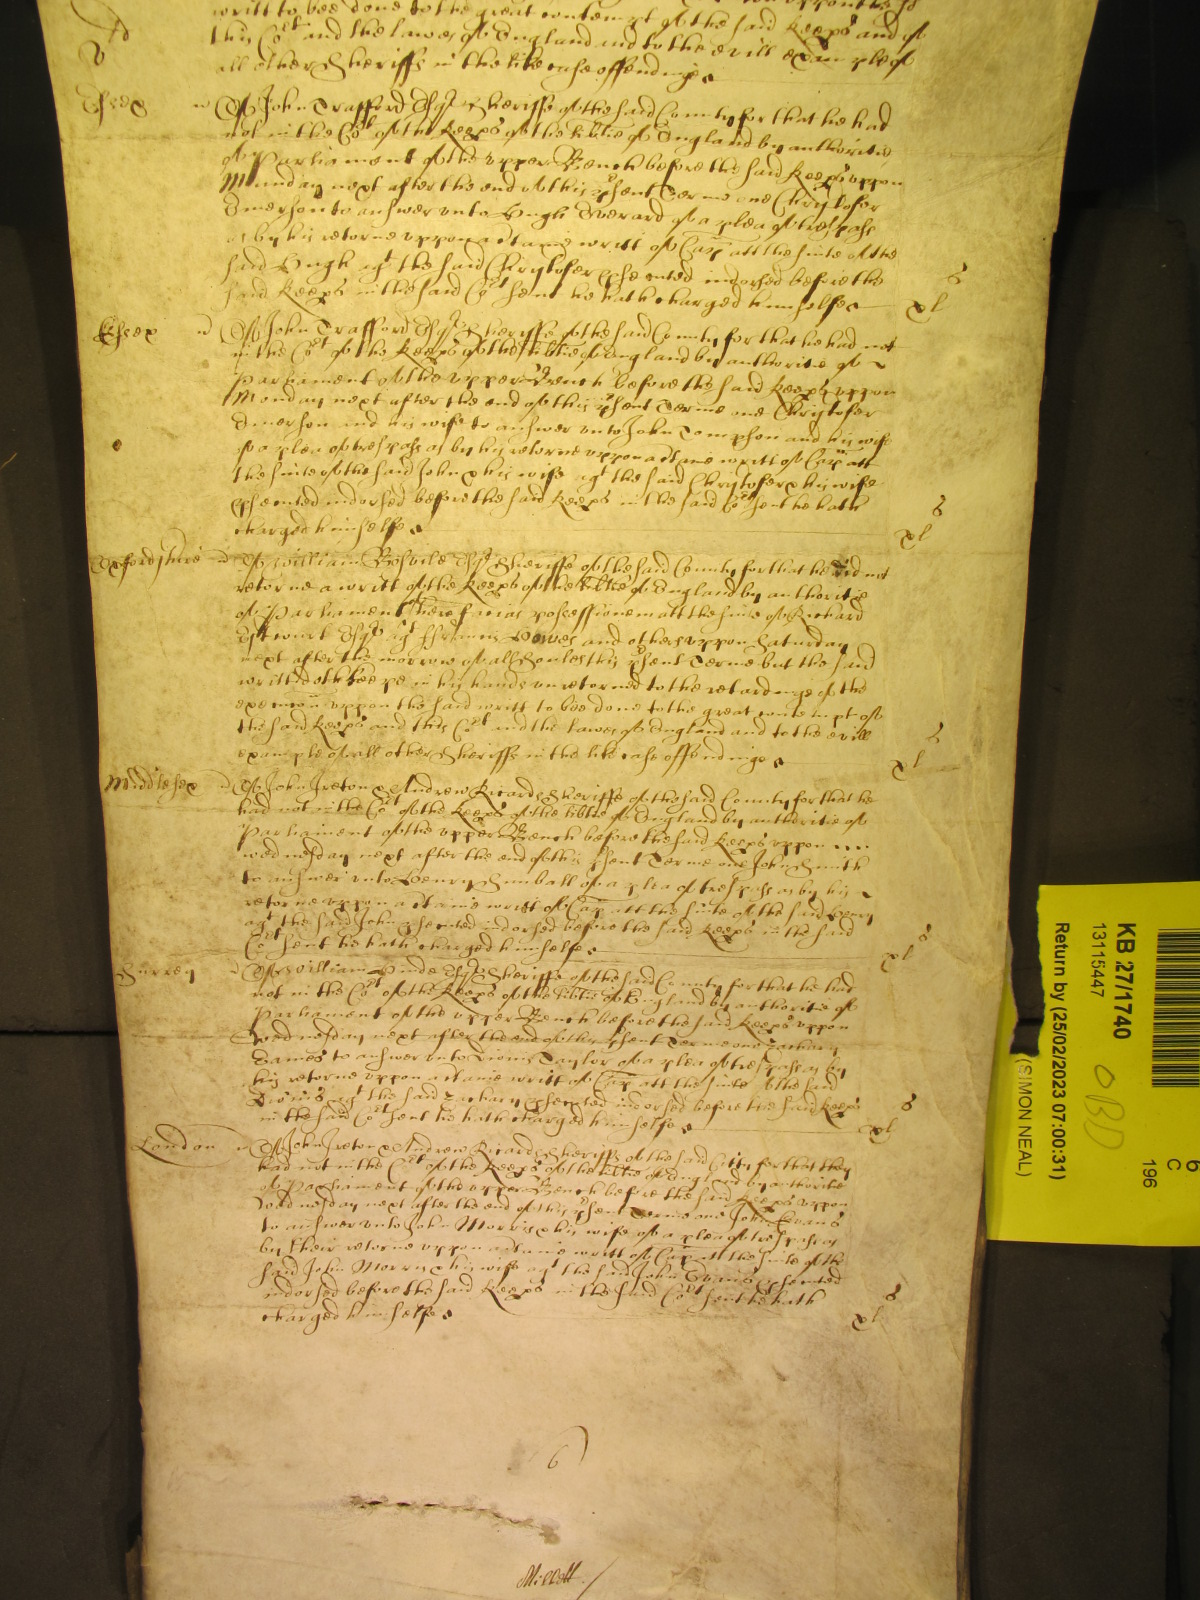 writt to bee done to the great contempt of the said Keeps and of
this Cort and the lawes of England and to the evill example of
all other Sheriffs in the like case offendinge
Essex Of John Trafford Esqr Sheriffe of the said County for that he had
not in the Cort of the Keeps of the libtie of England by authoritie
of Parliament of the upper Bench before the said Keeps uppon
Munday next after the end of this psent Terme one Christofer
Emerson to answer unto Hugh Everard of a plea of trespass
as by his retorne uppon a tame writt of Cap att the suite of the
said Hugh agt the said Christofer psented indorsed before the
said Keeps in the said Cort sent he hath charged himselfe xl s
Essex Of John Trafford Esqr Sheriffe of the said County for that he had not
in the Cort of the Keeps of the libtie of England by authoritie of
Parliament of the upper Bench before the said Keeps uppon
Monday next after the end of this psent Terme one Christofer
Emerson and his wife to answer unto John Tompson and his wife
of a plea of trespass as by his retorne uppon a tame writt of Cap att
the suite of the said John & his wife agt the said Christofer & his wife
psented indorsed before the said Keeps in the said Cort sent he hath
charged himselfe xl s
Oxfordshire Of William Esqr Sheriffe of the said County for that he did not
retorne a writt of the Keeps of the libtie of England by authoritie
of Parliament here facias possessionem att the suite of Richard
Esqr agt and others uppon Saturday
next after the morrow of all Soules this psent Terme but the said
writt doth keepe in his hands unretorned to the retardinge of the
execucon uppon the said writt to bee done to the great contempt of
the said Keeps and this Cort and the lawes of England and to the evill
example of all other Sheriffs in the like case offendinge xl s
Middlesex Of John Ireton & Andrew Ricard Sheriffe of the said County for that he
had not in the Cort of the Keeps of the libtie of England by authoritie of
Parliament of the upper Bench before the said Keeps uppon
wednesday next after the end of this psent Terme one John Smith
to answer unto Henry Kimball of a plea of trespass as by his
retorne uppon a tame writt of Cap att the suite of the said Henry
agt the said John psented indorsed before the said Keeps in the said
Cort sent he hath charged himselfe xl s
Surrey Of William Esqr Sheriffe of the said County for that he had
not in the Cort of the Keeps of the libtie of England by authoritie of
Parliament of the upper Bench before the said Keeps uppon
Wednesday next after the end of this psent Terme one Zachary
Eames to answer unto Taylor of a plea of trespass as by
his retorne uppon a tame writt of Cap att the suite of the said
agt the said Zachary psented indorsed before the said Keeps
in the said Cort sent he hath charged himselfe xl s
London Of John Ireton & Andrew Ricard Sheriffs of the said Citty for that they
had not in the Cort of the Keeps of the libtie of England by authoritie
of Parliament of the upper Bench before the said Keeps uppon
Wednesday next after the end of this psent Terme one John Evans
to answer unto John Morris & his wife of a plea of trespass as
by their retorne uppon a tame writt of Cap att the suite of the
said John Morris & his wife agt the said John Evans psented
indorsed before the said Keeps in the said Cort sent he hath
charged himselfe xl s
6
KB 27/1740
13115447
Return by (25/02/2023 07:00:31)
(SIMON NEAL)
OBD
6
C
196